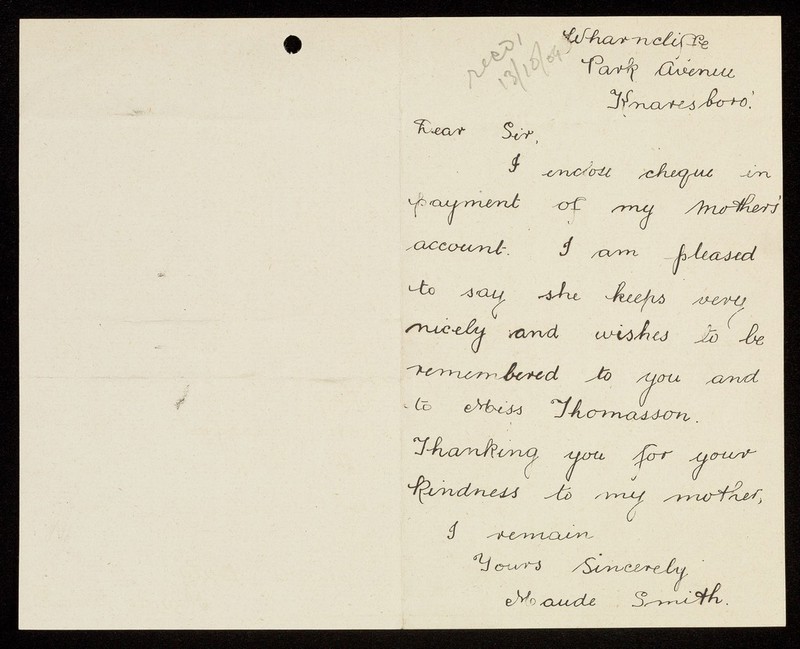 recd!
13/10/04
Wharncliffe
Park Avenue
Knaresboro'.
Dear Sir,
I enclose cheque in
payment of my Mother's
account. I am pleased
to say she keeps very
nicely and wishes to be
remembered to you and
to Miss Thomasson.
Thanking you for your
kindness to my mother,
I remain
Yours Sincerely
Maude Smith.